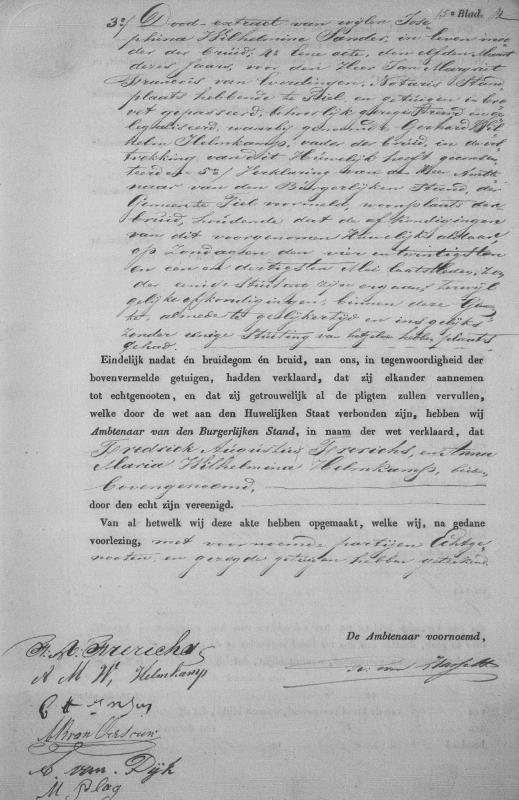 15e Blad.
3e/ Dood-extract van wijlen Jose
phina Wilhelmina Sander, in leven moe
der der bruid, 4e Eene acte, den elfden Mei
dezes jaars, voor den Heer Jan Margriet
Francois van Everdingen, Notaris Stand
plaats hebbende te Tiel, en getuigen in bre
vet gepasseerd, behoorlijk geregistreerd en ge
legaliseerd, waarbij genoemde Gerhard Wil
helm Helmkamp, vader der bruid, in de vol
trekking van dit Huwelijk heeft geconsen
teerd en 5e/ Verklaring van den Heer Ambte
naar van den Burgerlijken Stand, der
Gemeente Tiel voormelde woonplaats der
bruid, houdende dat de afkondigingen
van dit voorgenomen Huwelijk aldaar,
op Zondagen den vier en twintigsten
en een en dertigsten Mei laatstleden, zon
der eenige stuiting zijn gegaan, terwijl
gelijke afkondigingen, binnen deze
almede te gelijkertijd en insgelijks
zonder eenige stuiting van hetzelve hebben plaats
gehad.
Eindelijk nadat én bruidegom én bruid, aan ons, in tegenwoordigheid der
bovenvermelde getuigen, hadden verklaard, dat zij elkander aannemen
tot echtgenooten, en dat zij getrouwelijk al de pligten zullen vervullen,
welke door de wet aan den Huwelijken Staat verbonden zijn, hebben wij
Ambtenaar van den Burgerlijken Stand, in naam der wet verklaard, dat
Fredrick Augustus Frerichs, en Anna
Maria Wilhelmina Helmkamp, hier
bovengenoemd,
door den echt zijn vereenigd.
Van al hetwelk wij deze akte hebben opgemaakt, welke wij, na gedane
voorlezing, met voornoemde partijen Echtge
nooten, en gezegde getuigen hebben geteekend.
De Ambtenaar voornoemd,
F. A. Frerichs
A M W Helmkamp
A. van Dijk
M Plag